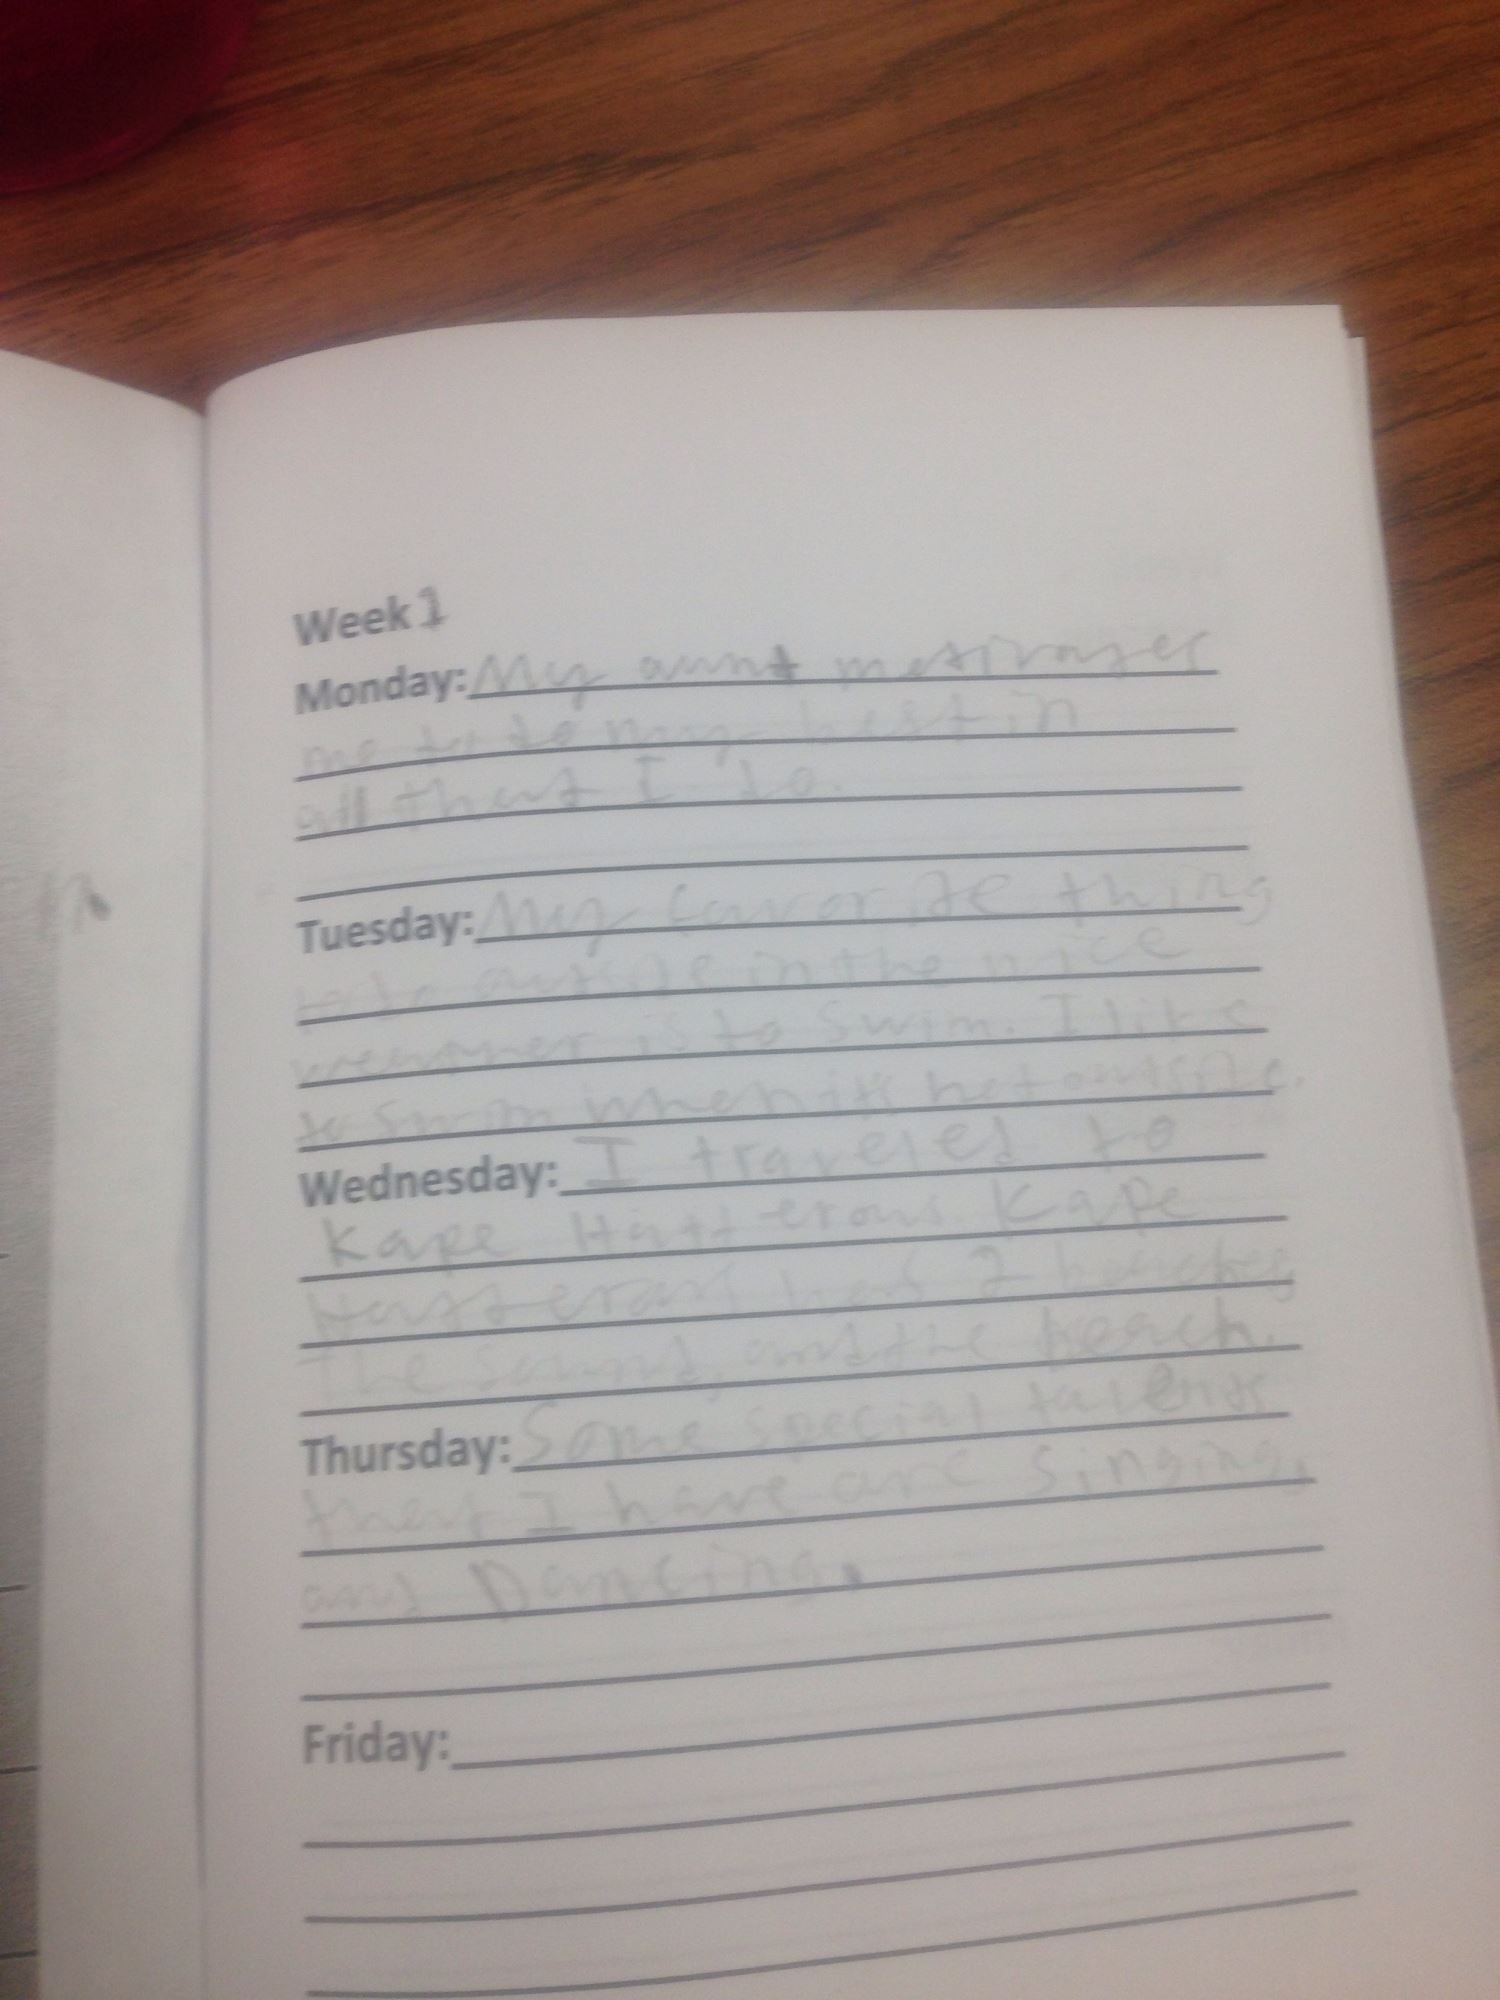 Week 1
Monday: My aunt motivates
me to do my best in
all that I do.
Tuesday: My favorite thing
to outside in the nice
weather is to swim. I like
to swim when it's hot outside.
Wednesday: I traveled to
Kape Hatteras. Kape
Hatteras has 2 beaches
the sound, and the beach.
Thursday: Some special talents
that I have are singing,
and Dancing.
Friday: